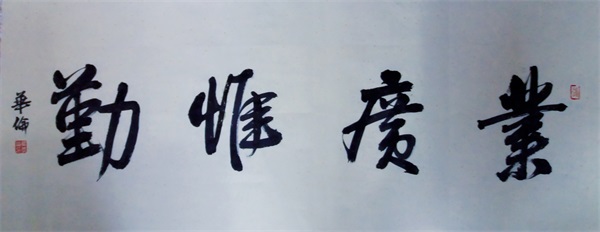 業廣惟勤
華倫